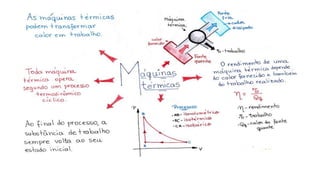 As máquinas térmicas
podem transformar
calor em trabalho.
Máquina
térmica
fonte
fria
calor
dissipado
calor
fornecido
fonte
quente
τ - trabalho
Toda máquina
térmica opera
segundo um processo
termodinâmico
cíclico.
Máquinas
térmicas
O rendimento de uma
máquina térmica depende
do calor fornecido e também
do trabalho realizado.
η = τ/Qq
η - rendimento
τ - trabalho
Qq - calor da fonte
quente
Ao final do processo, a
substância de trabalho
sempre volta ao seu
estado inicial.
P
A
B
C
V
Processos
AB - isovolumétrica
BC - isotérmica
CA - isobárica